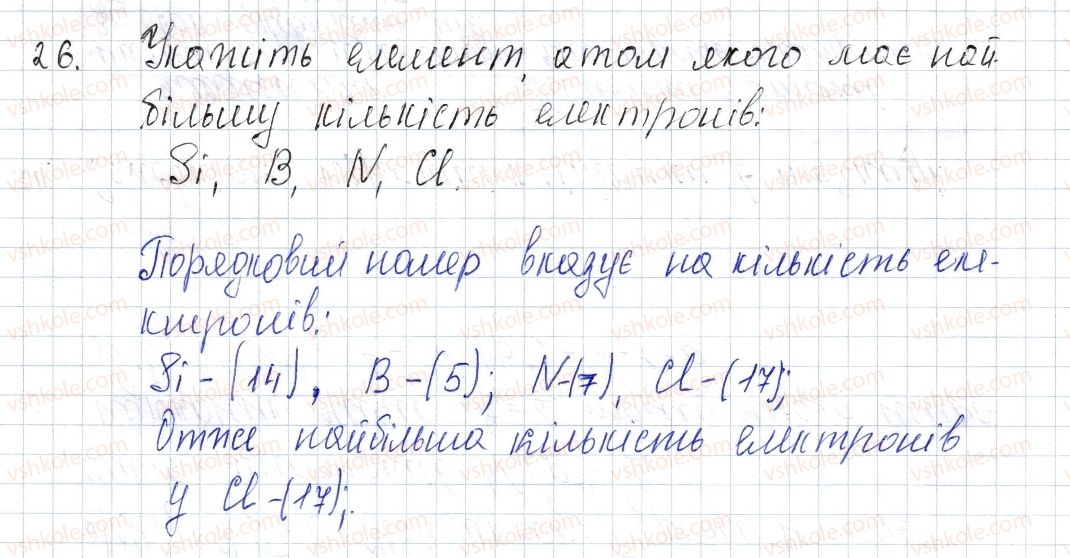 26. Укажіть елемент, атом якого має най-
більшу кількість електронів:
Si, B, N, Cl.
Порядковий номер вказує на кількість еле-
ктронів:
Si - (14), B - (5); N - (7), Cl - (17);
Отже найбільша кількість електронів
у Cl - (17);.